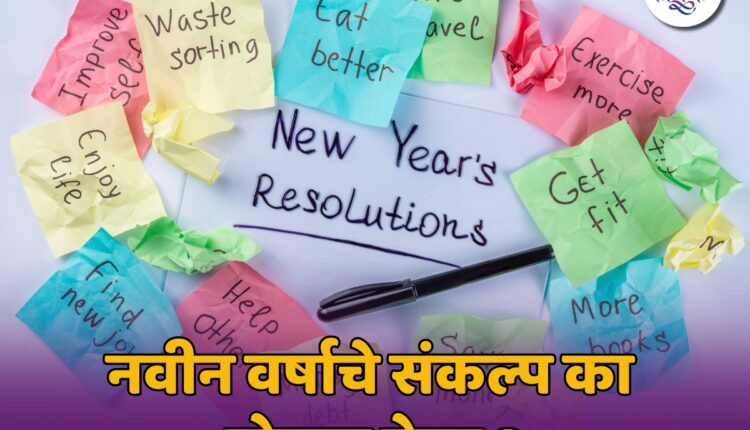 Improve
self
Waste
sorting
Eat
better
avel
Exercise
more
Enjoy
life
New Year's
Resolutions
Get
fit
Find
new
Help
More
books
debt
नवीन वर्षाचे संकल्प का